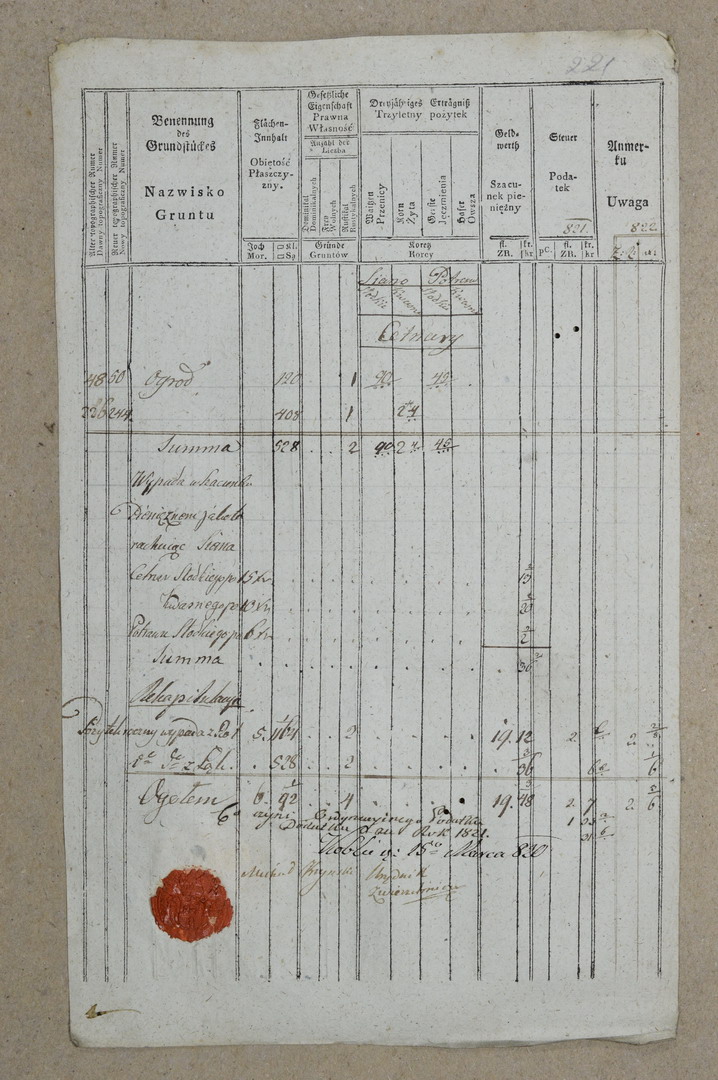 221
Alter topographischer Numer
Dawny topograficzny Numer
Neuer topographischer Numer
Nowy topograficzny Numer
Benennung
des
Grundstückes
Nazwisko
Gruntu
Flächen-
Innhalt
Obiętość
Płaszczy-
zny.
Joch □Kl.
Mor. □Są
Gesetzliche
Eigenschaft
Prawna
Własność
Anzahl der
Liczba
Dominikalnych
Frey
Wolnych
Rustikal
Rustykalnych
Gründe
Gruntów
Dreyjähriges Erträgniß
Trzyletny pożytek
Waitzen
Przenicy
Korn
Żyta
Gerste
Jęczmienia
Hafer
Owsza
Koretz
Korcy
Geld-
werth
Szacu-
nek pie-
niężny
fl. kr.
ZR. kr
Steuer
Poda-
tek
821.
pC. fl. kr.
ZR. kr
Anmer-
ku
Uwaga
822.
Siano Potraw
Cetnary
48 50 Ogrod 120 1 90 45
236 244 408 1 24
Summa 528 2 90 24 45
Wypada w Szacunku
Pieniężnem jakoto
rachując Siana
Cetner Słodkiego po 15 Xr
Kwasnego po 10 Xr 20
Potrawu Słodkiego po 6 Xr 2
Summa 36
Rekapitulacya
Pożytek roczny wypada z Rol 5. 1164 2 19. 12 2.
z Łąk. 528 2 36 6
Ogołem 6. 92 4 19. 48 2. 7 2. 6
czyni
Dodatku na Rok 1821.
15 Marca 820